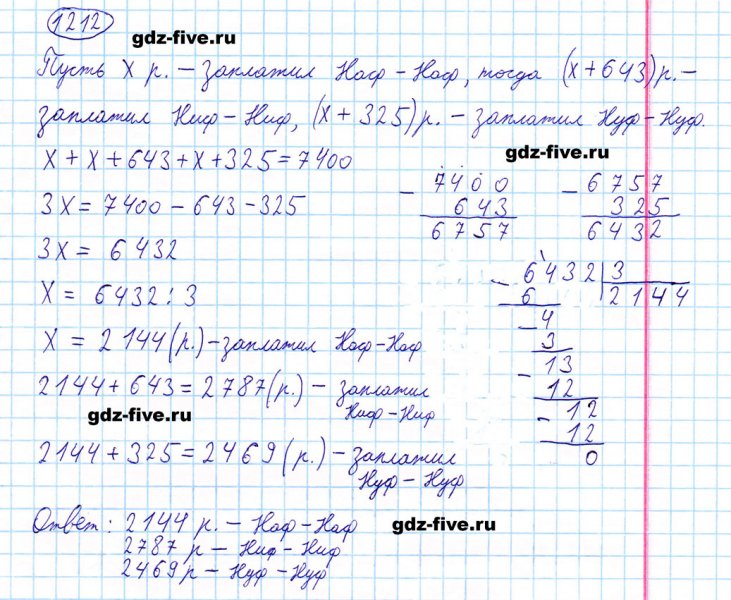 1212
gdz-five.ru
Пусть х р. – заплатил Наф – Наф, тогда (х + 643) р. –
заплатил Ниф – Ниф, (х + 325) р. – заплатил Нуф – Нуф.
gdz-five.ru
х + х + 643 + х + 325 = 7400
3х = 7400 – 643 – 325
3х = 6432
х = 6432 : 3
х = 2144 (р.) – заплатил Наф – Наф
2144 + 643 = 2787 (р.) – заплатил
Ниф – Ниф
gdz-five.ru
2144 + 325 = 2469 (р.) – заплатил
Нуф – Нуф
– 7400
643
6757
– 6757
325
6432
– 6432 | 3
6 2144
– 4
3
– 13
12
– 12
12
0
Ответ: 2144 р. – Наф – Наф
2787 р – Ниф – Ниф
2469 р – Нуф – Нуф
gdz-five.ru